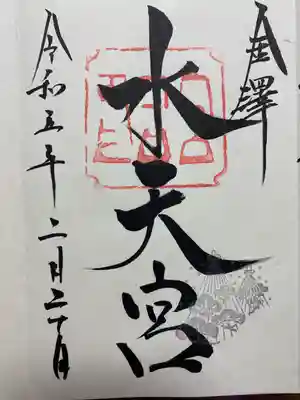 金澤
水天宮
令和五年二月二十日